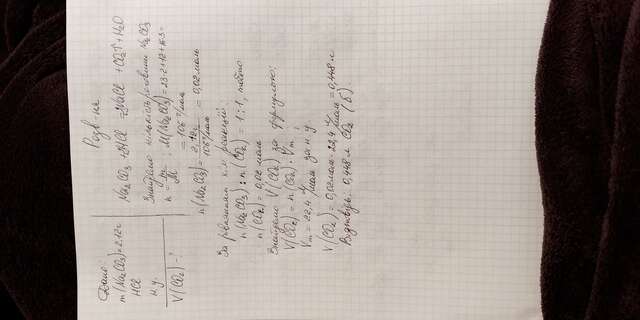 Дано:
m(Na2CO3)=2,12г
HCl
н.у.
V(CO2) - ?
Розв-ня
Na2CO3 + 2HCl = 2NaCl + CO2↑ + H2O
Знайдемо кількість речовини Na2CO3
n = m/M ; M(Na2CO3) = 23·2+12+16·3 =
= 106 г/моль
n(Na2CO3) = 2,12г / 106 г/моль = 0,02 моль
За рівнянням х-ї реакції:
n(Na2CO3) : n(CO2) = 1:1, тобто
n(CO2) = 0,02 моль
Знайдемо V(CO2) за формулою:
V(CO2) = n(CO2) · Vm
Vm = 22,4 л/моль за н.у
V(CO2) = 0,02моль · 22,4 л/моль = 0,448 л
Відповідь: 0,448 л CO2 (б)